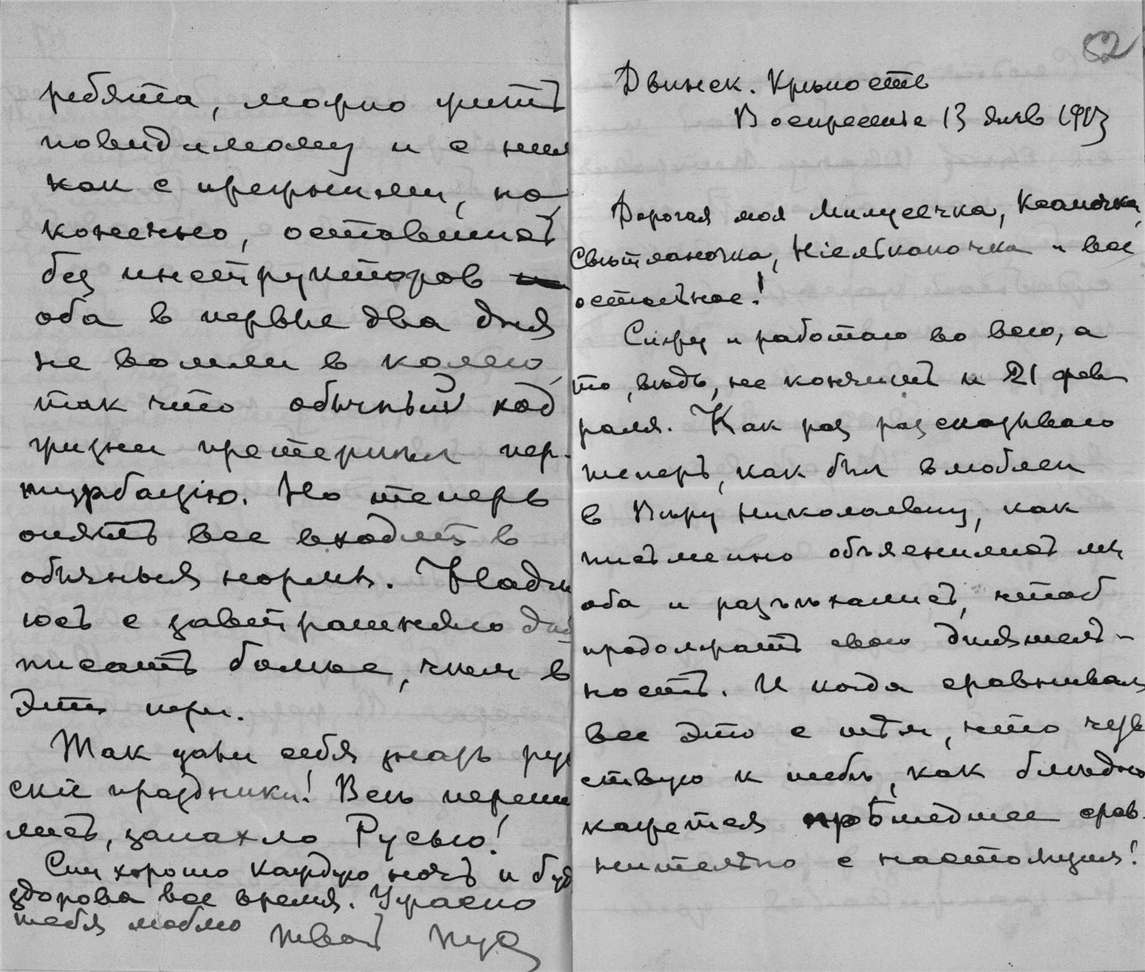 ребята, можно жить
повидимому и с ними
как с прежними, но,
конечно, оставшись
без инструкторов
оба в первые два дня
не вошли в колею,
так что обычный ход
жизни претерпел пер-
турбацію. Но теперь
опять все входит в
обычныя нормы. Надѣ
юсь с завтрашняго дня
писать больше, чѣм в
эти
Так дали себя знать рус
скіе праздники! Все перепи
лись, запахло Русью!
Спи хорошо каждую ночь и будь
здорова все время. Ужасно
тебя люблю твой
52
Двинск. Крѣпость
Воскресенье 13 янв 1913
Дорогая моя Милусечка,
Свѣтланочка, и все
остальное!
Сижу и работаю во всю, а
то, вѣдь, не кончишь и 21 фев
раля. Как раз разсказываю
теперь, как был влюблен
в Вѣру Николаевну, как
письменно объяснились мы
оба и разъѣхались, чтоб
продолжать свою дѣятель-
ность. И когда сравниваю
все это с тѣм, что чув
ствую к тебѣ, как блѣдно
кажется прошедшее срав-
нительно с настоящим!